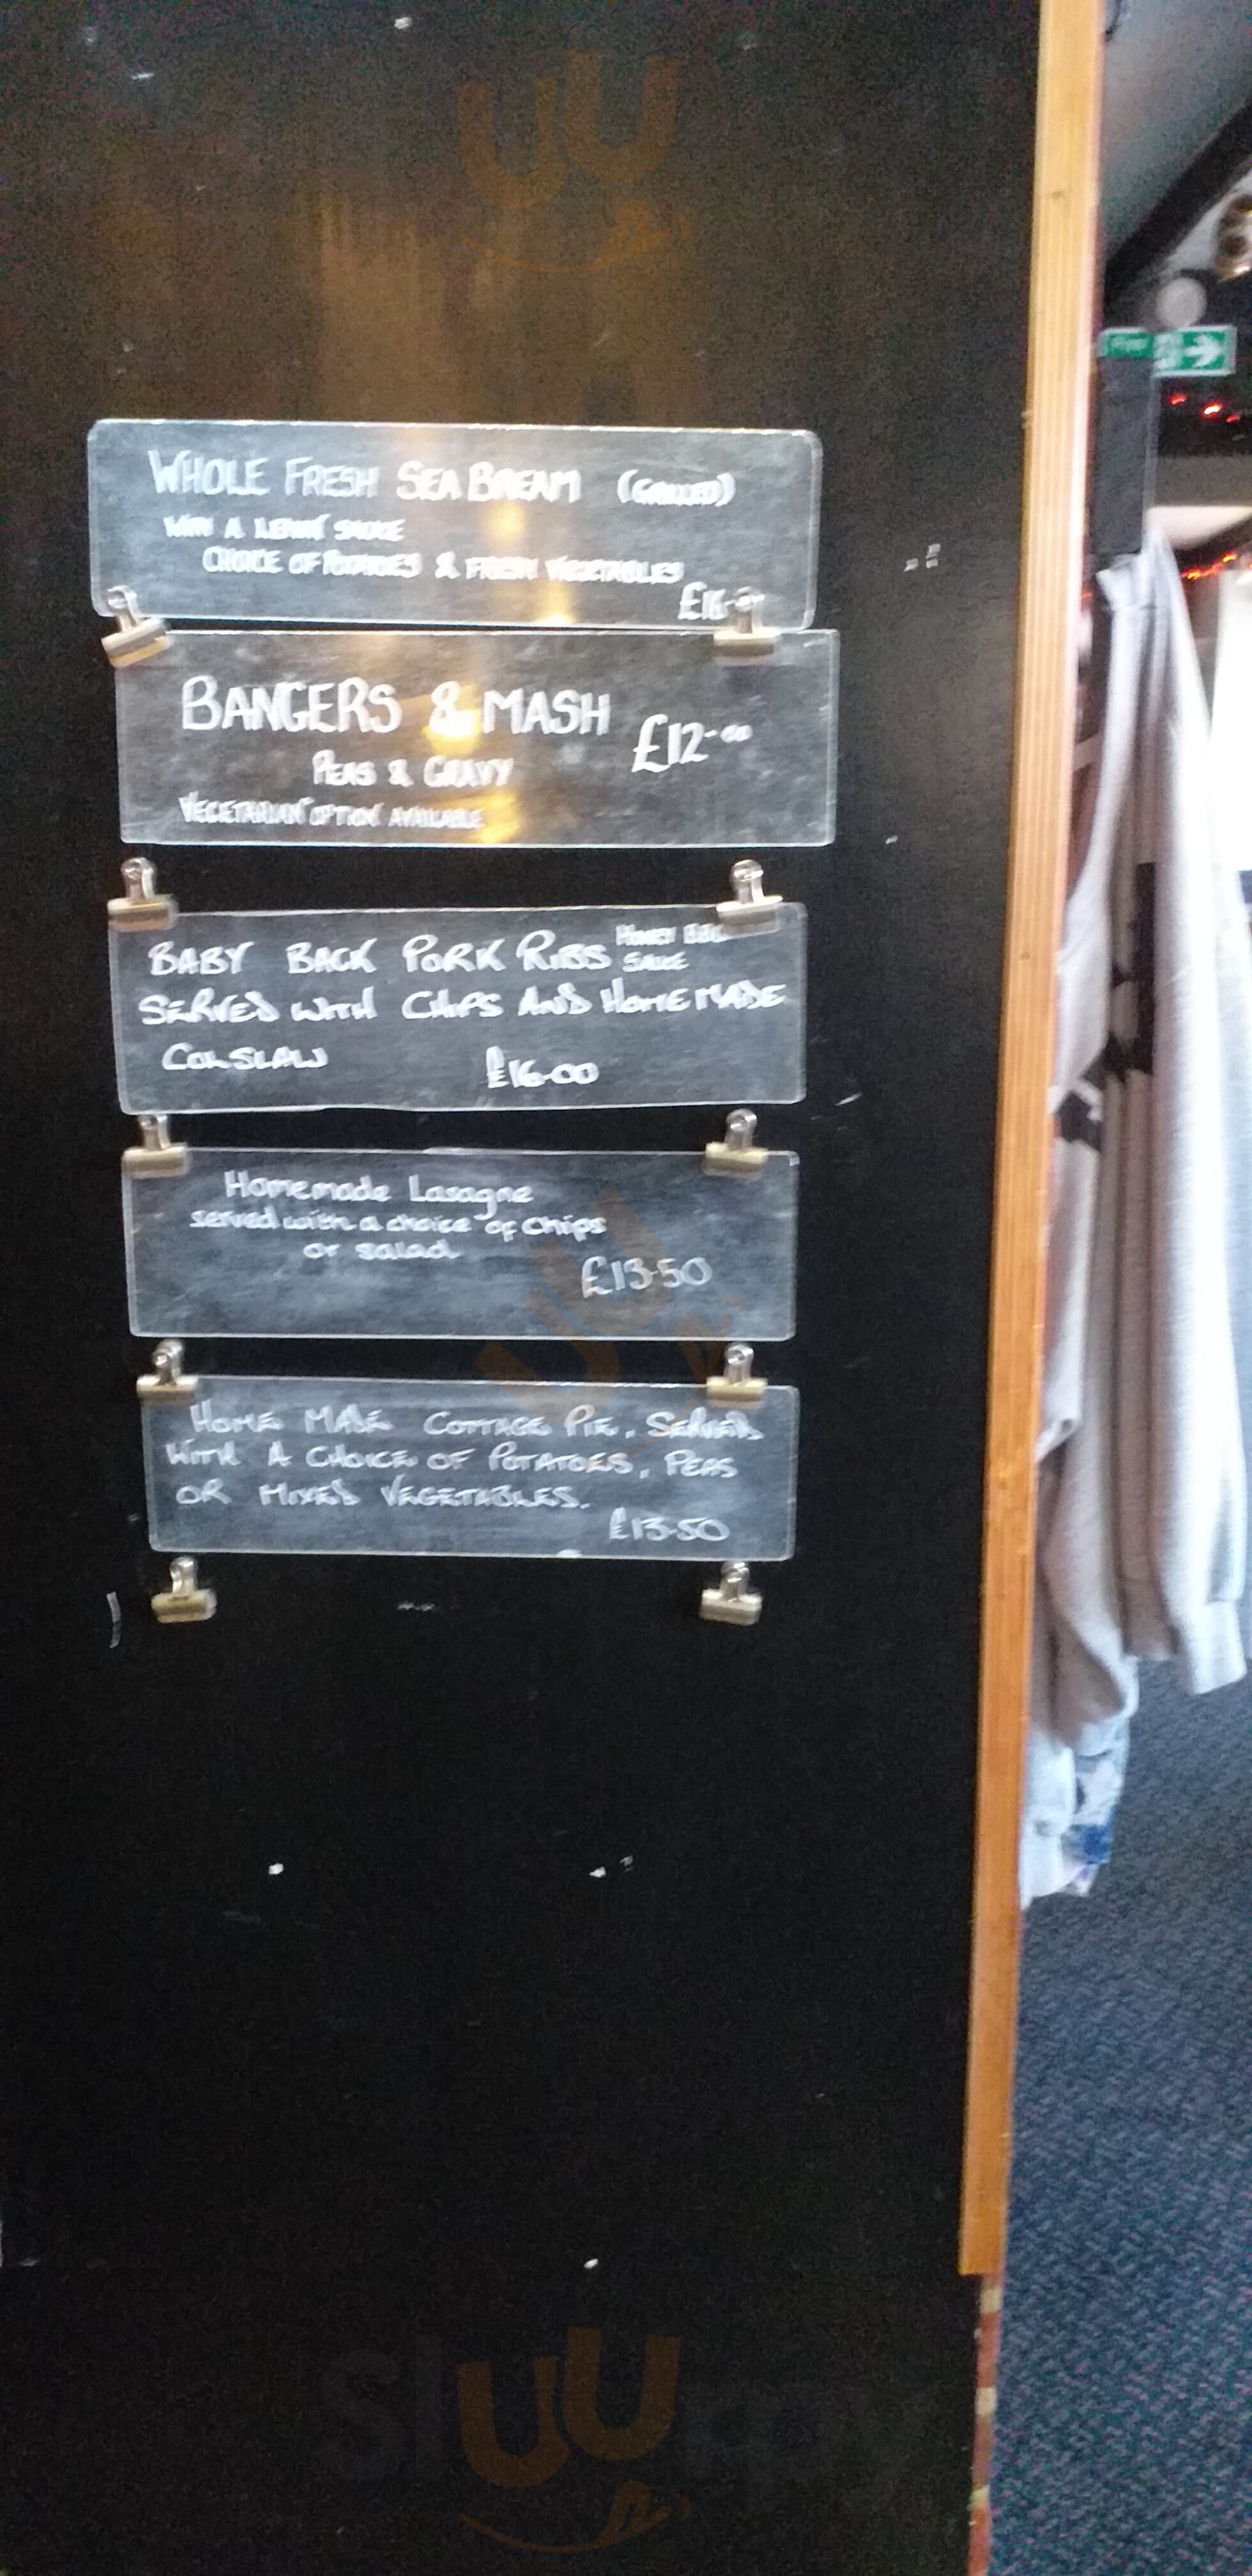 WHOLE FRESH SEA BREAM (GRILLED)
WITH A LEMON SAUCE
CHOICE OF POTATOES & FRESH VEGETABLES
BANGERS & MASH £12-00
PEAS & GRAVY
VEGETARIAN OPTION AVAILABLE
BABY BACK PORK RIBS HONEY BBQ
SAUCE
SERVED WITH CHIPS AND HOMEMADE
COLSLAW £16-00
Homemade Lasagne
served with a choice of chips
or salad
£13-50
HOME MADE COTTAGE PIE, SERVED
WITH A CHOICE OF POTATOES, PEAS
OR MIXED VEGETABLES.
£13-50
sluurpy